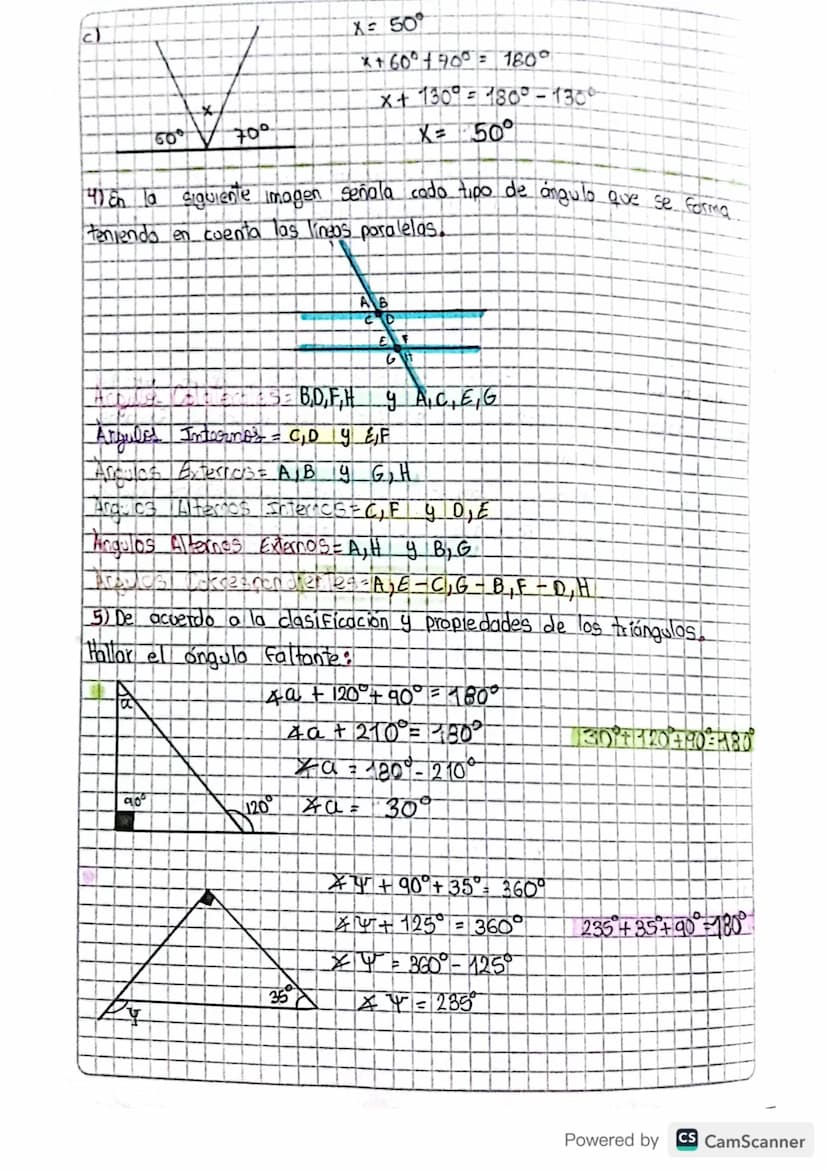 c)
x = 50°
x + 60° + 70° = 180°
x + 130° = 180° - 130°
x = 50°
x
60° 70°
4) En la siguiente imagen señala cada tipo de ángulo que se forma
teniendo en cuenta las líneas paralelas.
A B
C D
E F
G H
B,D,F,H y A,C,E,G
Ángulos Internos = C,D y E,F
Ángulos Externos = A,B y G,H
Ángulos Alternos Internos = C,F y D,E
Ángulos Alternos Externos = A,H y B,G
Ángulos Correspondientes = A,E - C,G - B,F - D,H
5) De acuerdo a la clasificación y propiedades de los triángulos.
Hallar el ángulo faltante:
a
90° 120°
∡a + 120° + 90° = 180°
∡a + 210° = 180°
∡a = 180° - 210°
∡a = 30°
30° + 120° + 90° = 180°
35°
Ψ
∡Ψ + 90° + 35° = 360°
∡Ψ + 125° = 360°
∡Ψ = 360° - 125°
∡Ψ = 235°
235° + 35° + 90° = 180°
Powered by CS CamScanner